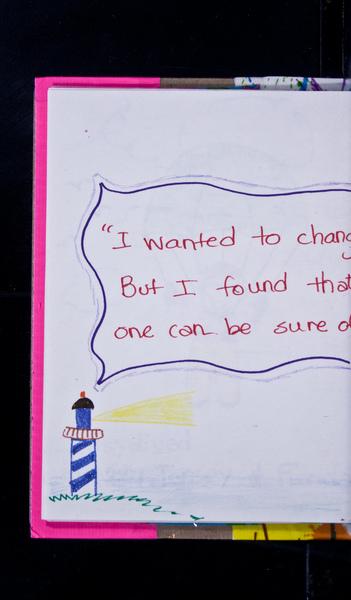 "I wanted to chang
But I found that
one can be sure of